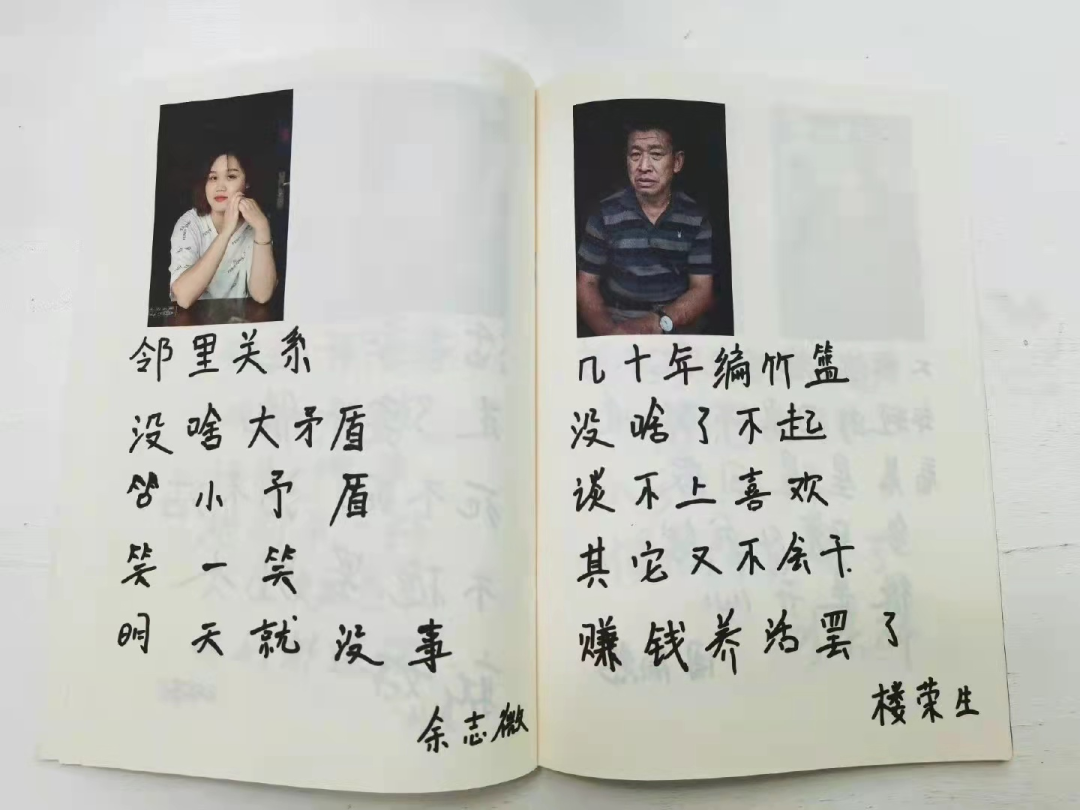 邻里关系
没啥大矛盾
小予盾
笑一笑
明天就没事
余志微
几十年编竹篮
没啥了不起
谈不上喜欢
其它又不会干
赚钱养活罢了
楼荣生